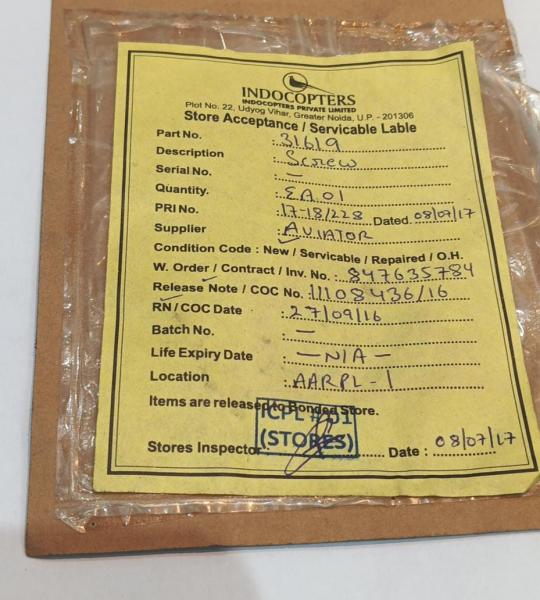 INDOCOPTERS
INDOCOPTERS PRIVATE LIMITED
Plot No. 22, Udyog Vihar, Greater Noida, U.P. - 201306
Store Acceptance / Servicable Lable
Part No. : 31619
Description : Screw
Serial No. : —
Quantity. : EA.01
PRI No. : 17-18/228 Dated 08/07/17
Supplier : AVIATOR
Condition Code : New / Servicable / Repaired / O.H.
W. Order / Contract / Inv. No. : 847635784
Release Note / COC No. : 11108436/16
RN / COC Date : 27/09/16
Batch No. : —
Life Expiry Date : — N/A —
Location : AARPL-1
Items are released to Bonded Store.
(STORES)
Stores Inspector : Date : 08/07/17